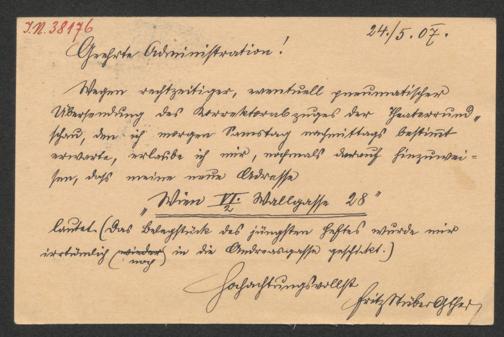 I.N. 38176
24./5.07.
Geehrte Administration!
Wegen rechtzeitiger, eventuell pneumatischer
Übersendung des Korrektorabzuges der Theaterrund„
schau, den ich morgen Samstag nachmittags bestimmt
erwarte, erlaube ich mir, nochmals darauf hinzuwei-
sen, daß meine neue Adresse
„Wien VI./2 Wallgasse 28"
lautet. (Das Belegstück des jüngsten Heftes wurde mir
irrtümlich (wieder noch) in die Andreasgasse geschickt.)
Hochachtungsvollst
Fritz Stüber Gther